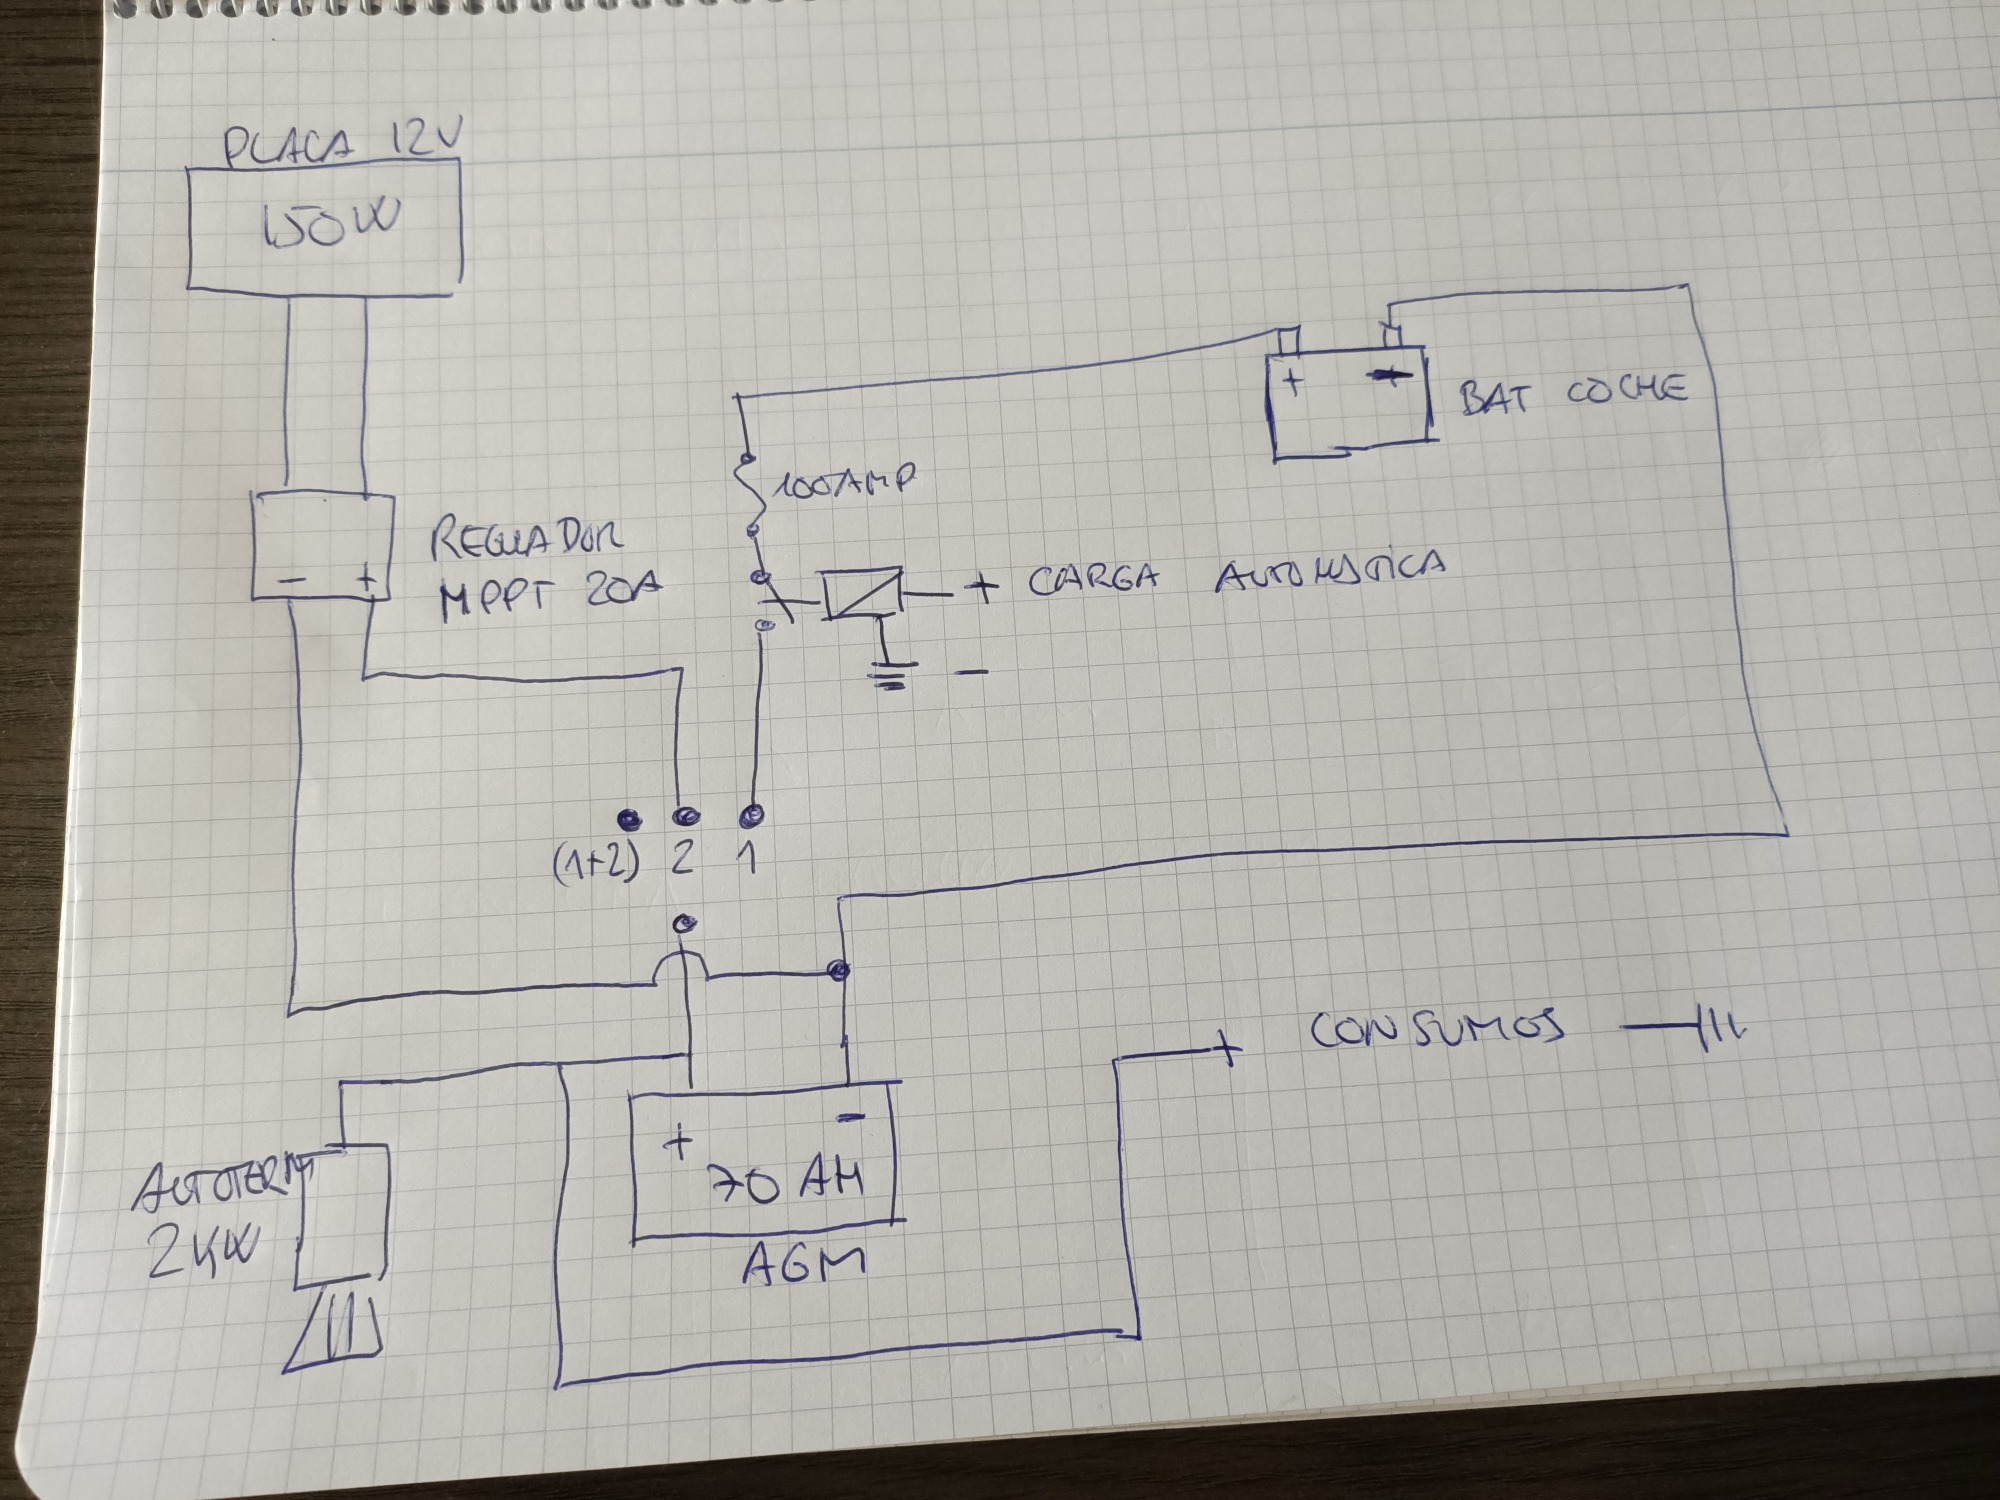 PLACA 12V
150W
+ -
BAT COCHE
100AMP
- +
REGULADOR
MPPT 20A
+ CARGA AUTOMATICA
-
(1+2) 2 1
+ CONSUMOS
+ -
70 AH
AGM
AUTOTERM
2KW